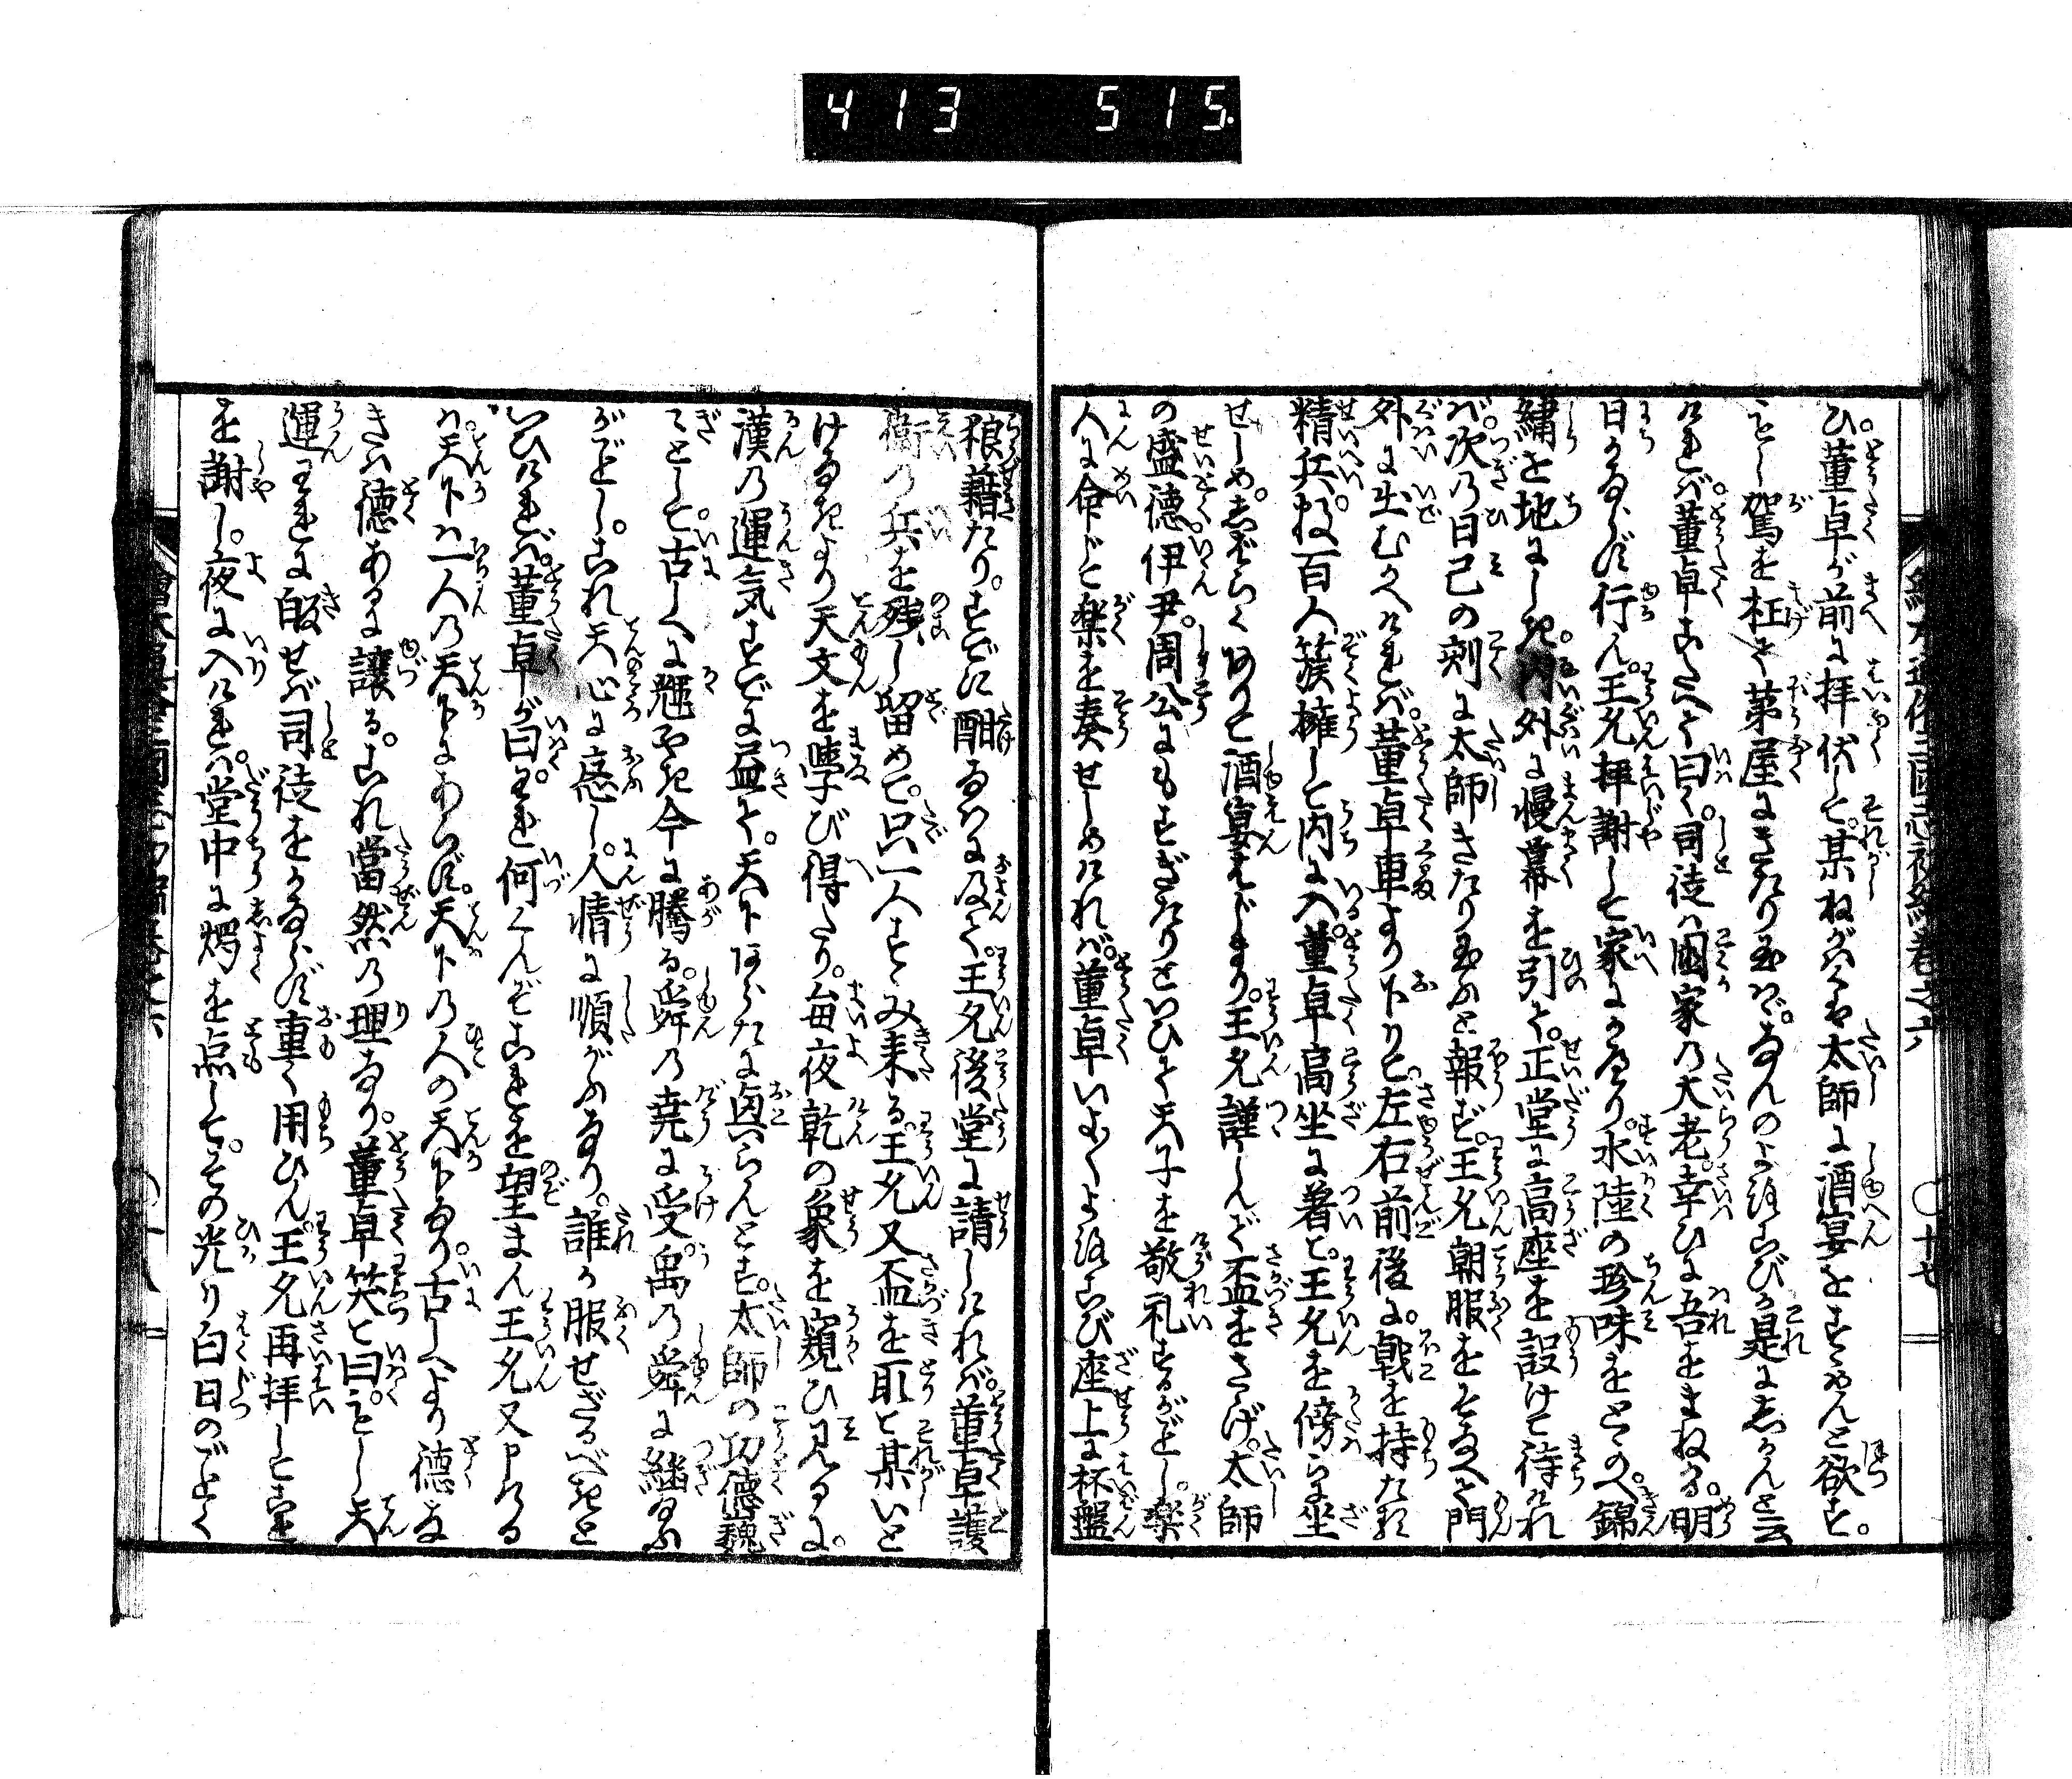 413 515
繪本通俗三國志初編卷之六 ○十七
ひ。董卓が前に拝伏して。某ねがはくは太師に酒宴をすゝめんと欲す。
もし駕を枉て茅屋にきたり玉はゞ。なんのよろこびか是にしかんと云
ければ。董卓こたへて曰く。司徒は国家の大老。幸ひに吾をまねる。明
日かならず行ん。王允拝謝して家にかへり。水陸の珍味をとゝのへ。錦
繡を地にしき。内外に幔幕を引て。正堂に高座を設けて待れ
ば。次の日巳の剋に太師きたり玉ふと報ず。王允朝服をそなへて門
外に出むかへければ。董卓車より下りて。左右前後に。戟を持たる
精兵。数百人簇擁して内に入。董卓高坐に着て。王允を傍らに坐
せしめ。志ばらくありて酒宴はじまり。王允謹しんで盃をさゝげ。太師
の盛徳伊尹。周公にもすぎたりといひて天子を敬礼するがごとし。樂
人に命じて樂を奏せしめければ。董卓いよ〱よろこび座上に杯盤
狼藉たり。すでに酣なはに及て。王允後堂に請しければ。董卓護
衛の兵を残し留めて。只一人すゝみ来る。王允又盃を取て某いと
けなきより天文を學び得たり。毎夜乾の象を窺ひ見るに。
漢の運気すでに益て。天下あらたに興らんとす。太師の功徳巍
々として。古しへに冠たり今に騰る。舜の堯に受。禹の舜に継なふ
がごとし。これ天心に應し。人情に順がふなり。誰か服せざるべきと
いひければ。董卓が曰。われ何くんぞこれを望まん王允又申ける
は。天下は一人の天下にあらず。天下の人の天下なり。古しへより徳な
きは徳あるに讓る。これ當然の理なり。董卓笑て曰。もし天
運われに皈せば司徒をかならず重く用ひん。王允再拝して是
を謝し。夜に入ければ。堂中に燭を点して。その光り白日のごとく
繪本通俗三國志初編卷之六 ○十八